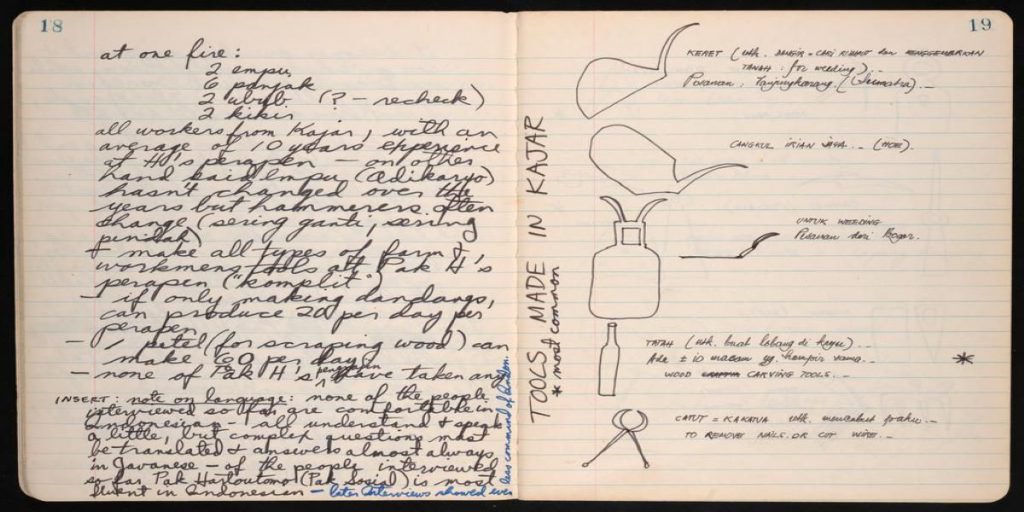 18
at one fire:
2 empu
6 panjak
2 ubub (? - recheck)
2 kikir
all workers from Kajar, with an
average of 10 years' experience
at H's perapen — on other
hand said empu (Adikaryo)
hasn't changed over the
years but hammerers often
change (sering ganti, sering
pindah)
+ make all types of farm &
workmens tools at Pak H's
perapen ("komplit")
- if only making dandangs,
can produce 20 per day per
perapen
- 1 petel (for scraping wood) can
make 60 per day
- none of Pak H's have taken any
INSERT: note on language: none of the people
interviewed so far are comfortable in
Indonesian - all understand & speak
a little, but complex questions must
be translated & answers almost always
in Javanese - of the people interviewed
so far Pak Hartoutomo (Pak Sosial) is most
fluent in Indonesian - later interviews showed even
less command of Indon.
19
TOOLS MADE IN KAJAR
* most common
KERET (utk. DANGIR = CARI RUMPUT dan MENGGEMBURKAN
TANAH: for weeding)
Pesanan: Tanjungkarang (Sumatra). -
CANGKUL IRIAN JAYA. - (HOE).
UNTUK WEEDING
Pesanan dari Bogor.
TATAH (utk. buat lobang di kayu). -
Ada ± 10 macam yg. hampir sama. -
WOOD CARVING TOOLS. -
*
CATUT = KAKATUA utk. mencabut paku. -
TO REMOVE NAILS OR CUT WIRE. -